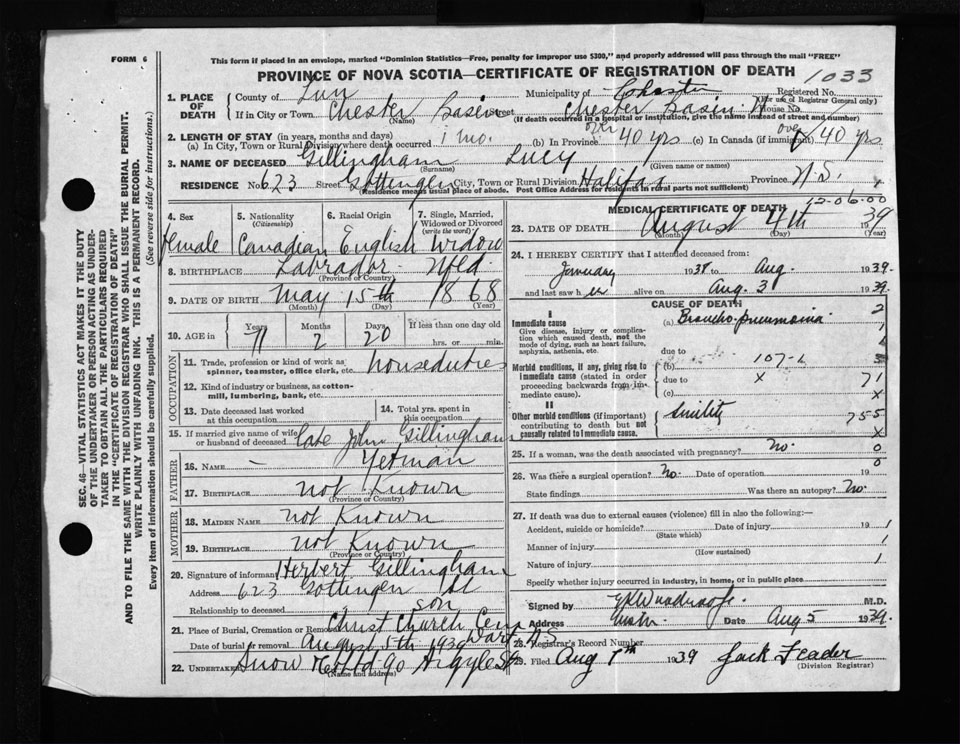 FORM 6
This form if placed in an envelope, marked "Dominion Statistics—Free, penalty for improper use $300," and properly addressed will pass through the mail "FREE"
PROVINCE OF NOVA SCOTIA—CERTIFICATE OF REGISTRATION OF DEATH
1033
1. PLACE OF DEATH
County of Lun Municipality of Chester Registered No.
(For use of Registrar General only)
If in City or Town Chester Basin Street Chester Basin House No.
(Name) (If death occurred in a hospital or institution, give name instead of street and number)
2. LENGTH OF STAY (in years, months and days)
(a) In City, Town or Rural Division where death occurred 1 mo. (b) In Province over 40 yrs (c) In Canada (if immigrant) over 40 yrs
3. NAME OF DECEASED Gillingham Lucy
(Surname) (Given name or names)
RESIDENCE No. 623 Street Gottengen City, Town or Rural Division Halifax Province N.S.
(Residence means usual place of abode. Post Office Address for residents in rural parts not sufficient)
4. Sex female
5. Nationality (Citizenship) Canadian
6. Racial Origin English
7. Single, Married, Widowed or Divorced (write the word) Widow
8. BIRTHPLACE Labrador Nfld.
(Province or Country)
9. DATE OF BIRTH May 15th 1868
(Month) (Day) (Year)
10. AGE in Years 71 Months 2 Days 20 If less than one day old hrs. or min.
OCCUPATION
11. Trade, profession or kind of work as spinner, teamster, office clerk, etc. houseduties
12. Kind of industry or business, as cotton-mill, lumbering, bank, etc.
13. Date deceased last worked at this occupation
14. Total yrs. spent in this occupation
15. If married give name of wife or husband of deceased Late John Gillingham
FATHER
16. NAME – Yetman
17. BIRTHPLACE not Known
(Province or Country)
MOTHER
18. MAIDEN NAME not Known
19. BIRTHPLACE not Known
(Province or Country)
20. Signature of informant Herbert Gillingham
Address 623 Gottengen St
Relationship to deceased son
21. Place of Burial, Cremation or Removal Christ Church Cem Dart. N S
Date of burial or removal August 5th 1939
22. Undertaker Snow & Co Ltd 90 Argyle St
(Name and address)
MEDICAL CERTIFICATE OF DEATH
12-06-00
23. DATE OF DEATH August 4th 1939
(Month) (Day) (Year)
24. I HEREBY CERTIFY that I attended deceased from:
January 1938 to Aug. 1939.
and last saw her alive on Aug. 3 1939.
CAUSE OF DEATH
I
Immediate cause
Give disease, injury or complication which caused death, not the mode of dying, such as heart failure, asphyxia, asthenia, etc.
(a) Broncho-pneumonia
due to
Morbid conditions, if any, giving rise to immediate cause (stated in order proceeding backwards from immediate cause).
(b) 107-
due to x
(c)
71
x
II
Other morbid conditions (if important) contributing to death but not causally related to immediate cause.
Senility
755
x
25. If a woman, was the death associated with pregnancy? no. 0
26. Was there a surgical operation? no. Date of operation 19 0
State findings Was there an autopsy? No.
27. If death was due to external causes (violence) fill in also the following:—
Accident, suicide or homicide? Date of injury 19 1
(State which)
Manner of injury 1
(How sustained)
Nature of injury 1
Specify whether injury occurred in industry, in home, or in public place
Signed by M.D.
Address Date Aug 5 1939.
28. Registrar's Record Number
29. Filed Aug 1939 Jack Leader
(Division Registrar)
SEC. 46—VITAL STATISTICS ACT MAKES IT THE DUTY OF THE UNDERTAKER OR PERSON ACTING AS UNDERTAKER TO OBTAIN ALL THE PARTICULARS REQUIRED IN THE "CERTIFICATE OF REGISTRATION OF DEATH" AND TO FILE THE SAME WITH THE DIVISION REGISTRAR WHO SHALL ISSUE THE BURIAL PERMIT.
WRITE PLAINLY WITH UNFADING INK. THIS IS A PERMANENT RECORD.
Every item of information should be carefully supplied. (See reverse side for instructions.)